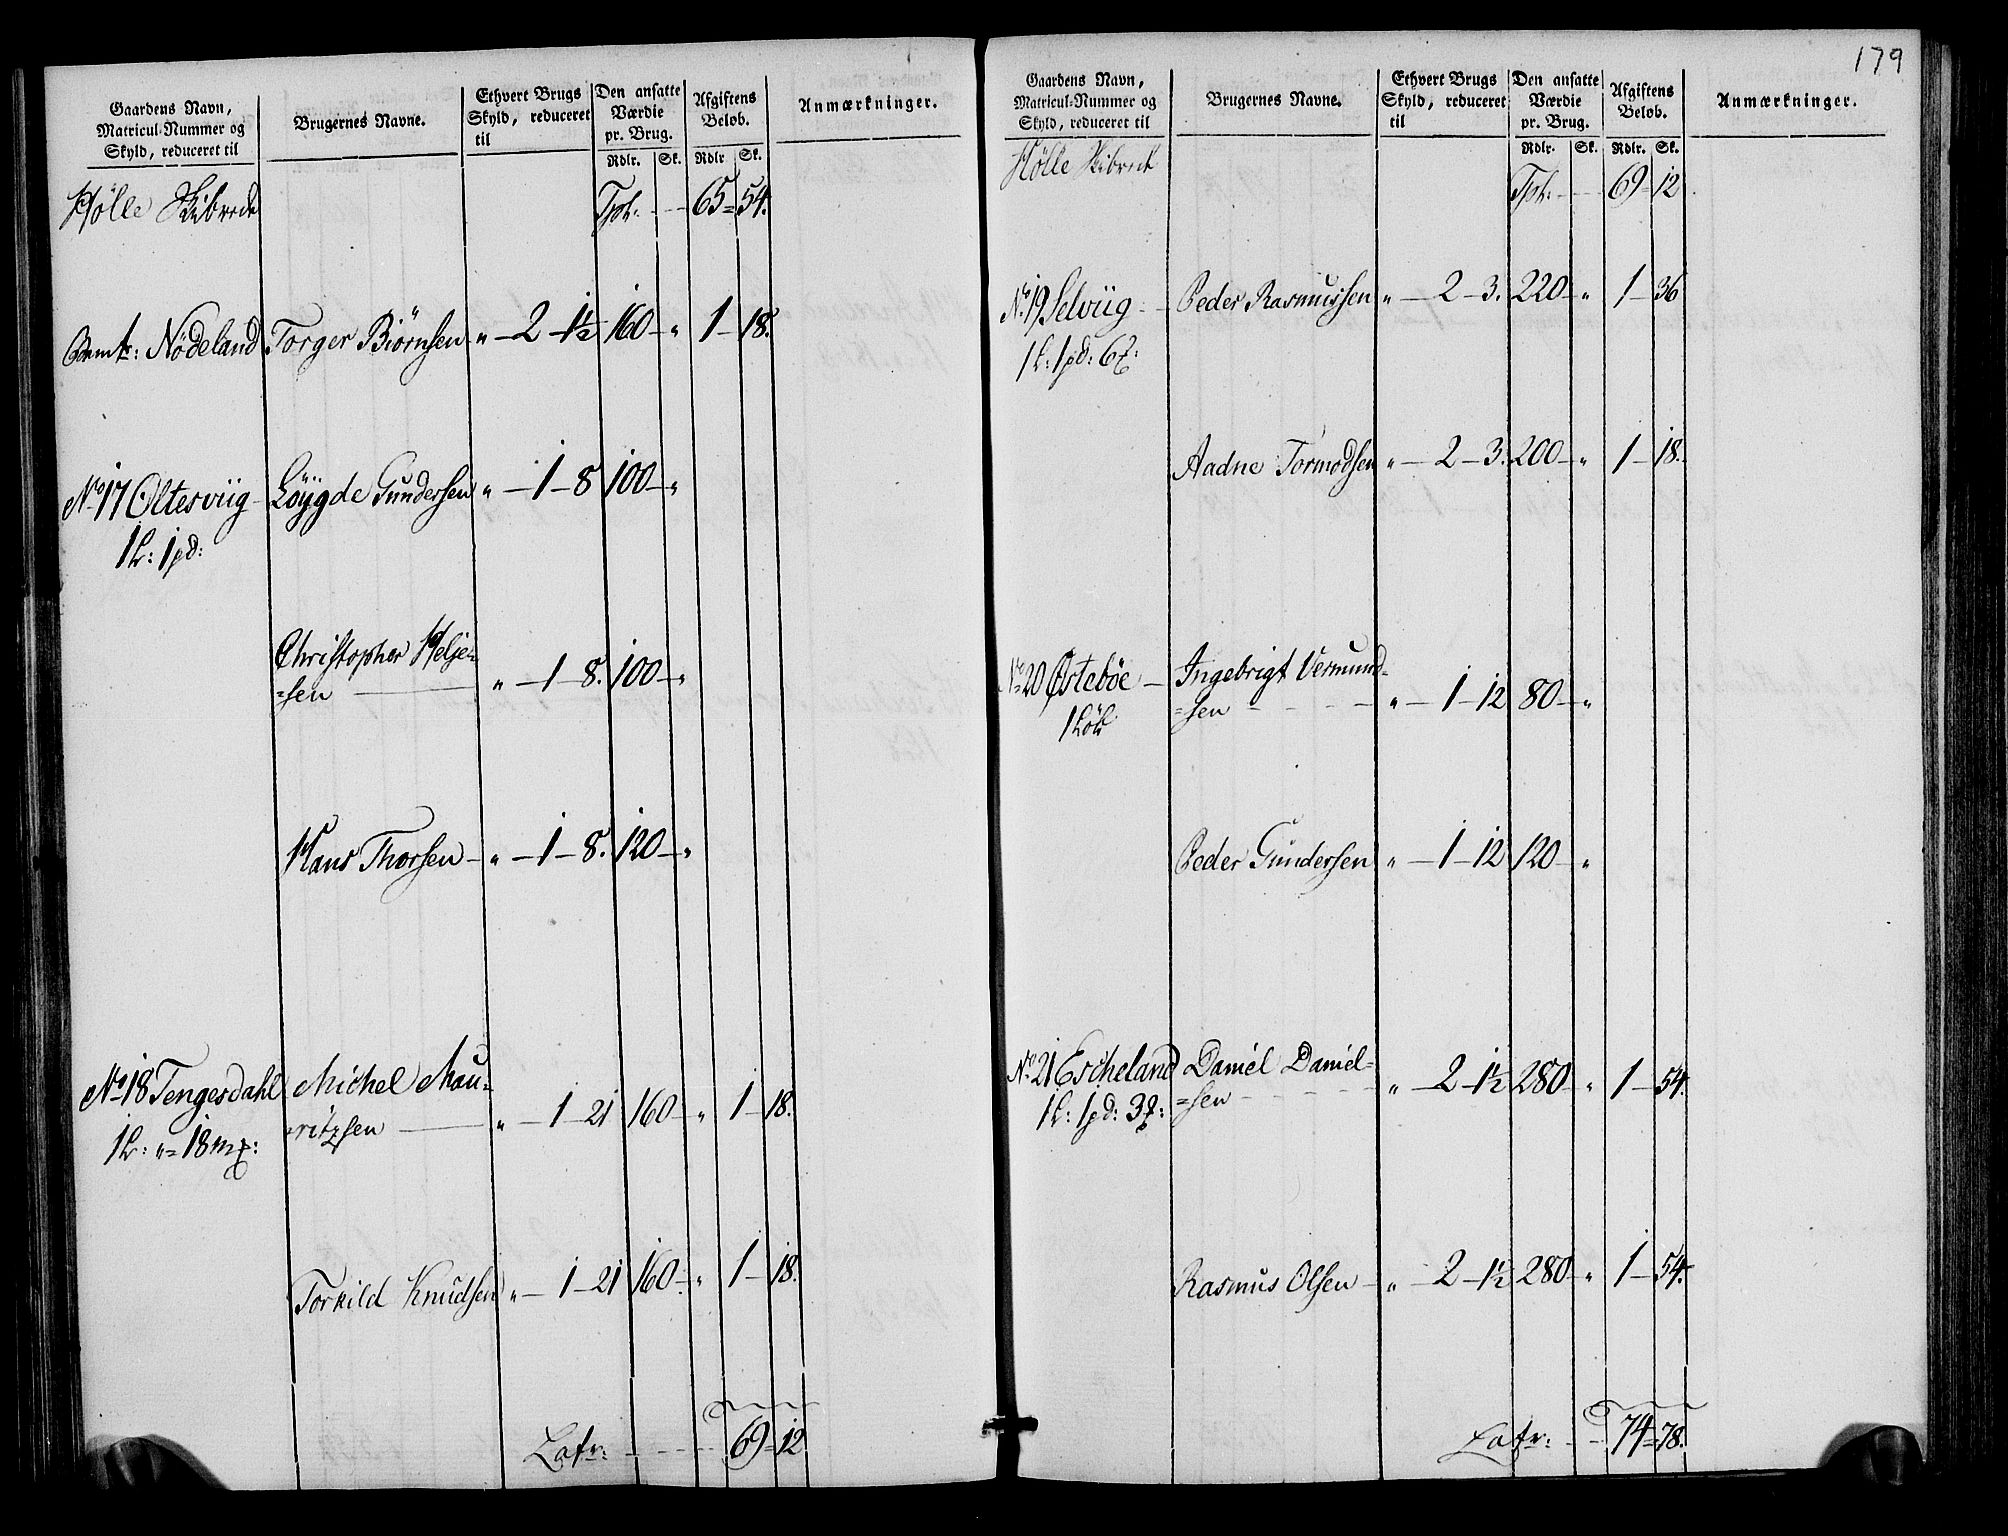 Gaardens Navn,
Matricul-Nummer og
Skyld, reduceret til
Brugernes Navne.
Ethvert Brugs
Skyld, reduceret
til
Den ansatte
Værdie
pr. Brug.
Rdlr. Sk.
Afgiftens
Beløb.
Rdlr Sk.
Anmærkninger.
Hölle Skibrede Tpt: 65 = 54.
Nödeland Torger Biørnsen " 2 - 1½ 160 - " 1 - 18.
No 17 Oltesviig Löygde Gundersen " - 1 - 8 100 - "
1 L: 1 pd:
Christopher Helje-
=sen " - 1 - 8. 100 - "
Hans Thorsen - " - 1 - 8. 120 - "
No 18 Tengesdahl Michel Mau-
1 L: " = 18 m#: =ritzsen " - 1 - 21 160 - " 1 - 18.
Torkild Knudsen " - 1 - 21 160 - " 1 - 18.
Latr: 69 = 12
179
Gaardens Navn,
Matricul-Nummer og
Skyld, reduceret til
Brugernes Navne.
Ethvert Brugs
Skyld, reduceret
til
Den ansatte
Værdie
pr. Brug.
Rdlr. Sk.
Afgiftens
Beløb.
Rdlr. Sk.
Anmærkninger.
Hölle Skibrede Tpt: 69 = 12
No 19 Selviig Peder Rasmussen " - 2 - 3. 220 - " 1 - 36
1 L: 1 pd: 6 #:
Aadne Tormodsen " - 2 - 3. 200 - " 1 - 18.
No 20 Østebøe - Ingebrigt Vermund-
1 Löb =sen " - 1 - 12 80 - "
Peder Gundersen " - 1 - 12 120 - "
No 21 Escheland Daniel Daniel-
1 L: 1 pd: 3 #: =sen " - 2 - 1½ 280 - " 1 - 54.
Rasmus Olsen - " - 2 - 1½ 280 - " 1 - 54.
Latr: 74 = 78.